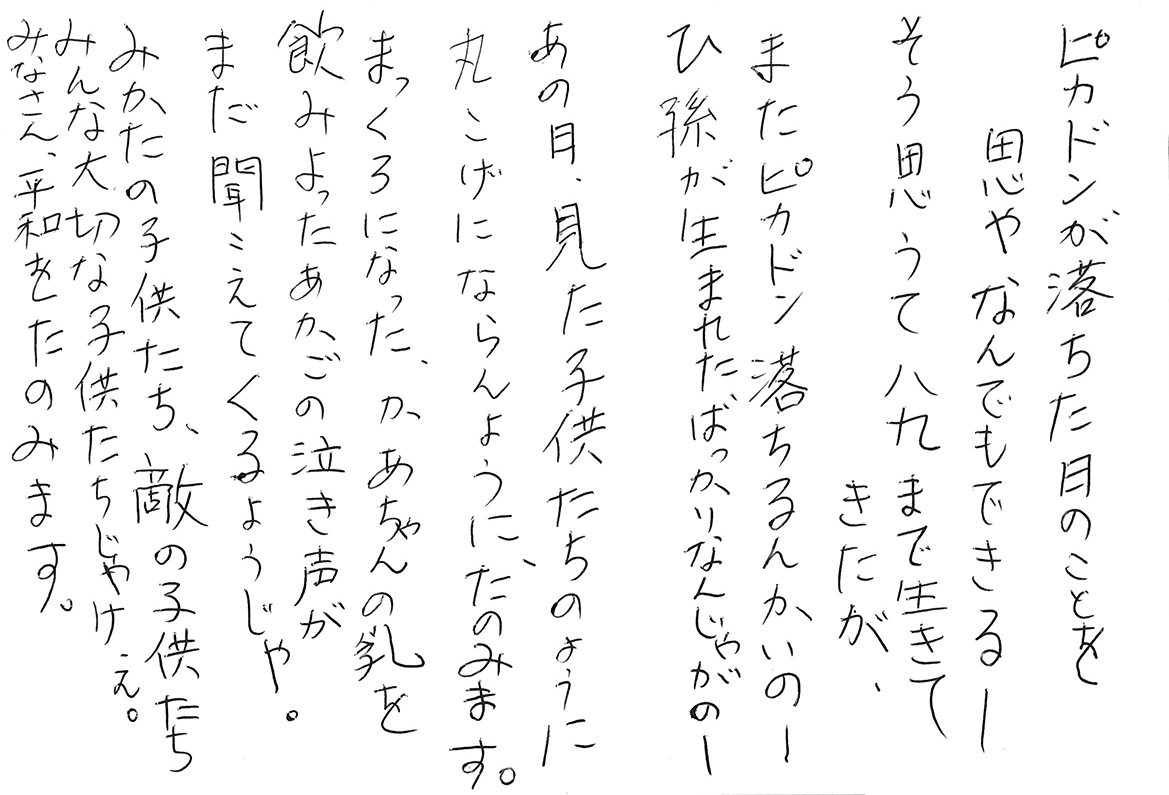 ピカドンが落ちた日のことを
思やなんでもできるー
そう思うて八九まで生きて
きたが、
またピカドン落ちるんかいのー
ひ孫が生まれたばっかりなんじゃがのー
あの日、見た子供たちのように
丸こげにならんように、たのみます。
まっくろになった、かあちゃんの乳を
飲みよったあかごの泣き声が
まだ聞こえてくるようじゃ。
みかたの子供たち、敵の子供たち
みんな大切な子供たちじゃけえ。
みなさん、平和をたのみます。